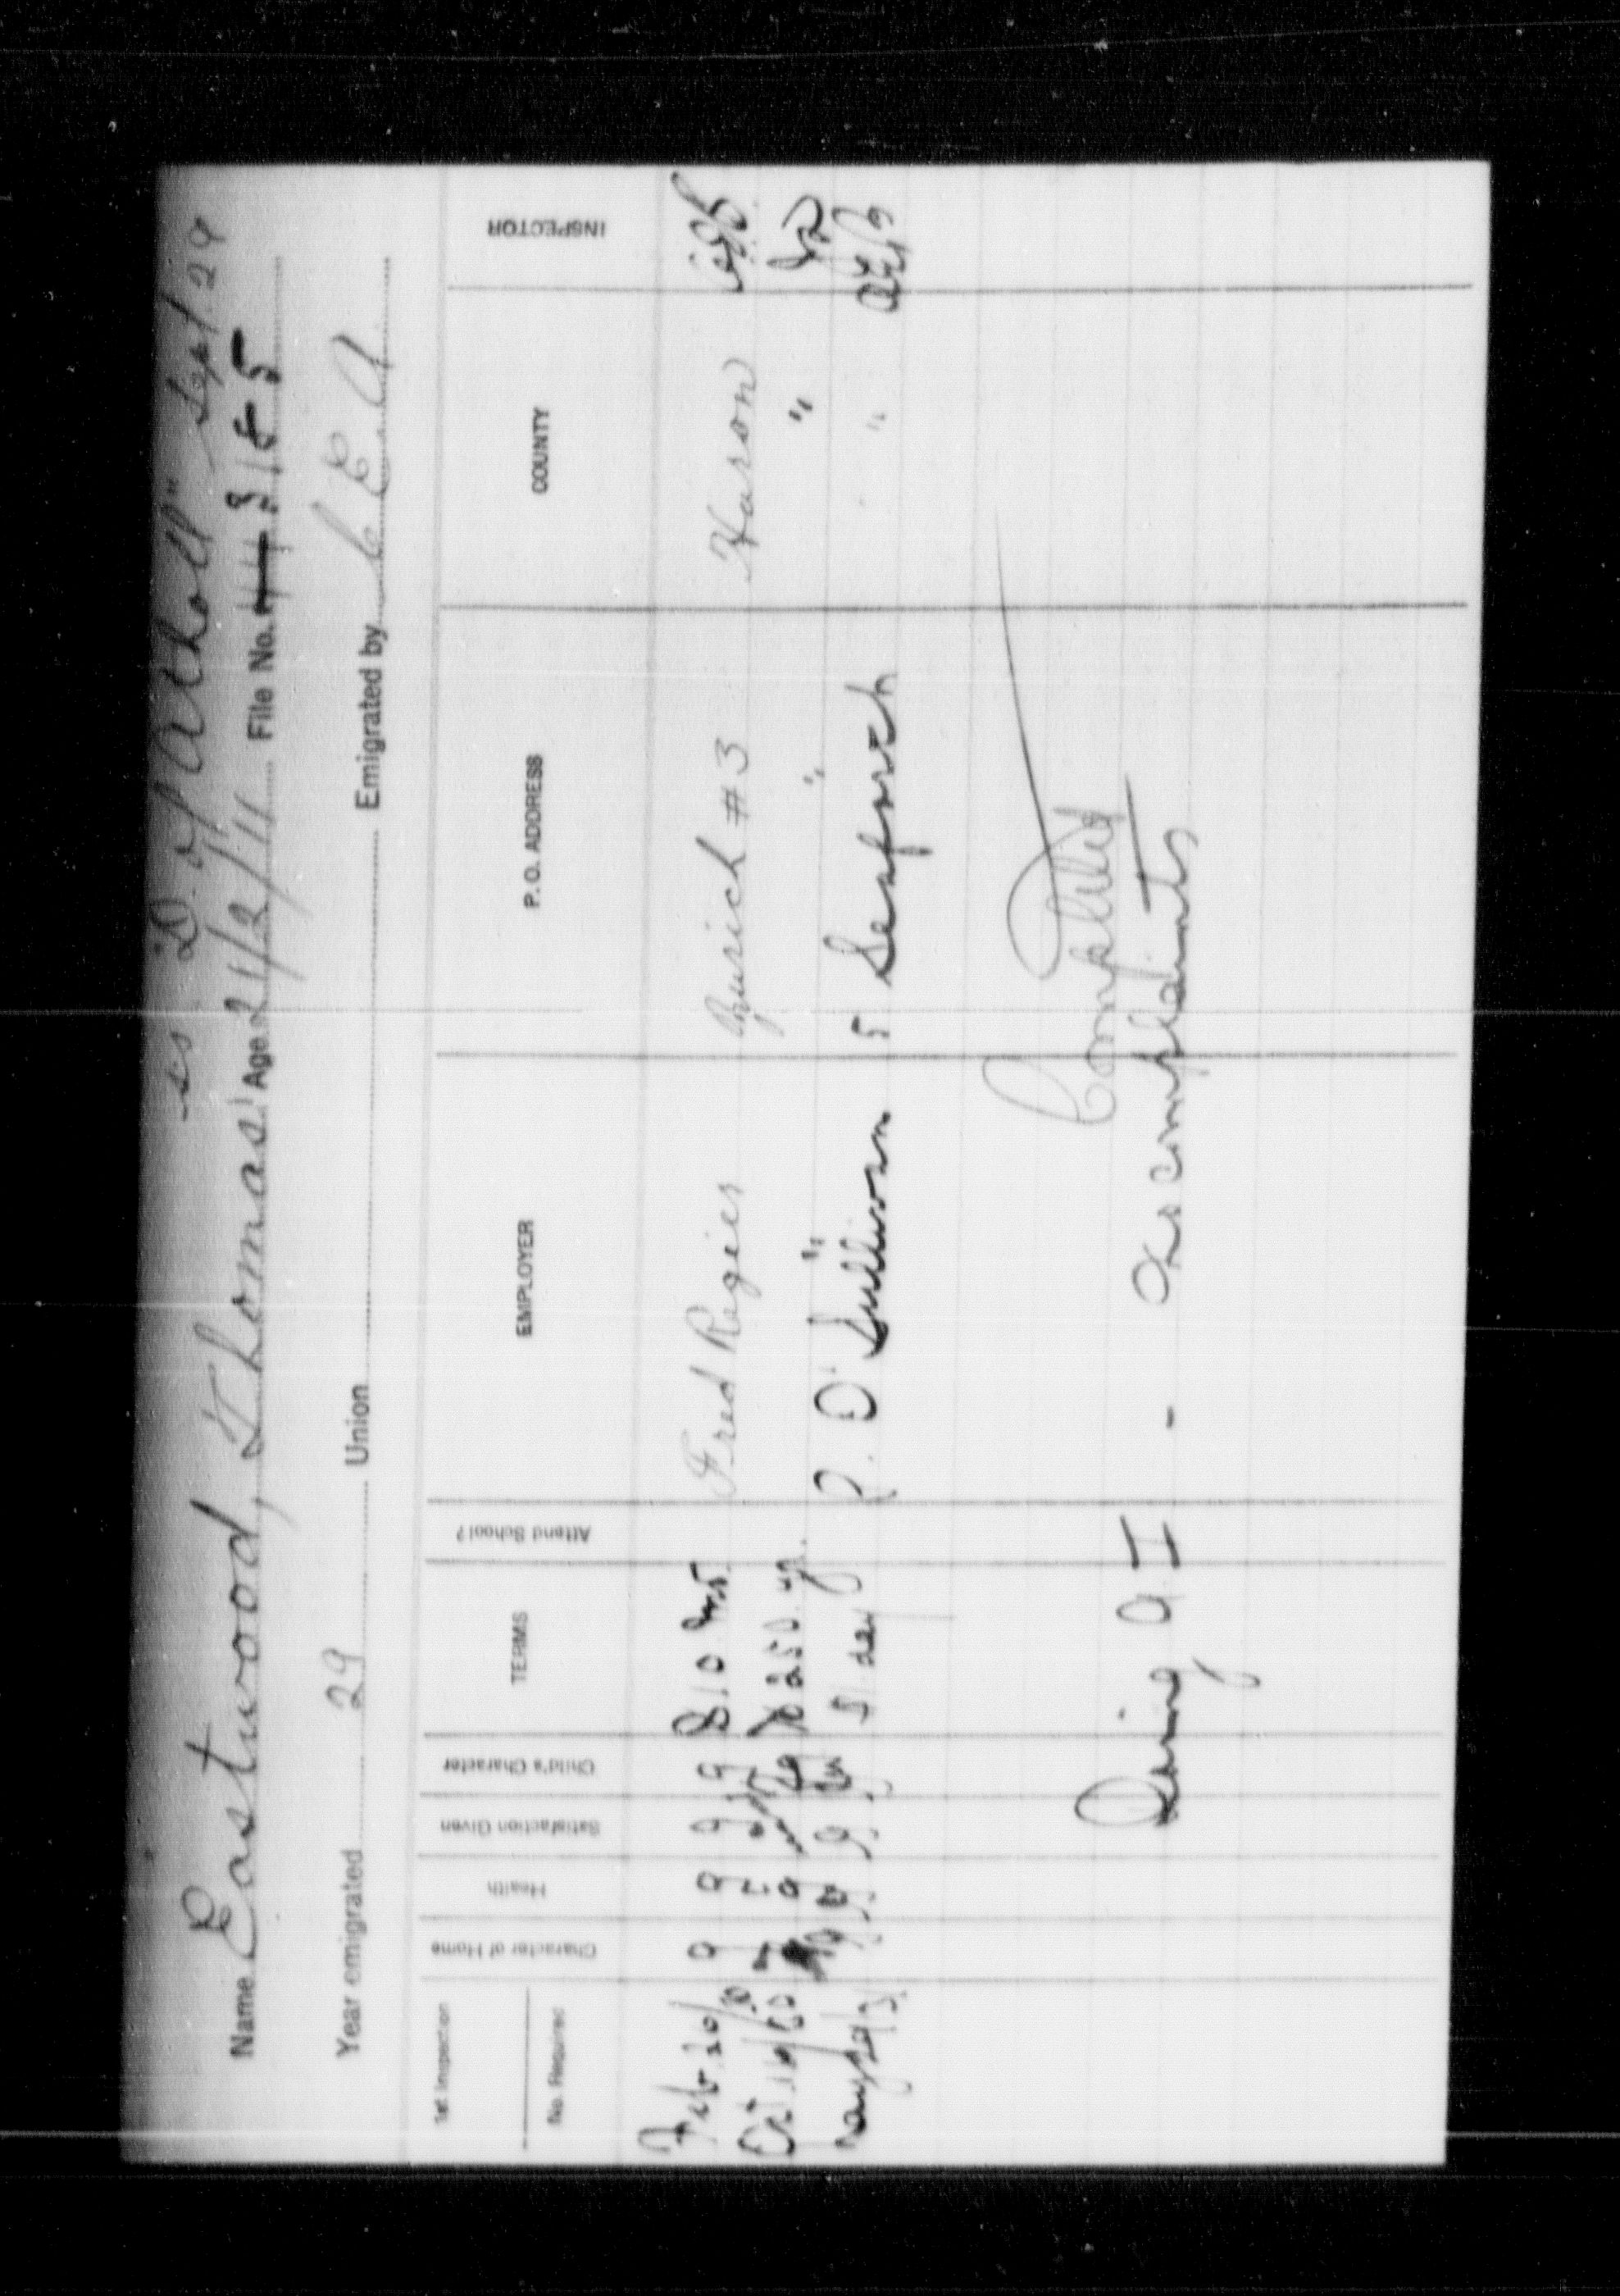 ss D. of Atholl" Sept 29
Name Eastwood, Thomas Age 21/2/11 File No. 44 3155
Year emigrated 29 Union Emigrated by C E A
1st Inspection No. Required Character of Home Health Satisfaction Given Child's Character TERMS Attend School? EMPLOYER P. O. ADDRESS COUNTY INSPECTOR
Feb 20/30 g g g g $10 Fred Regier Zurich #3 Huron
Oct 16/30 $250 yr. " " "
May 29/31 g g g $1 day P. O'Sullivan 5 Seaforth "
Completed
Doing A I - no complaints